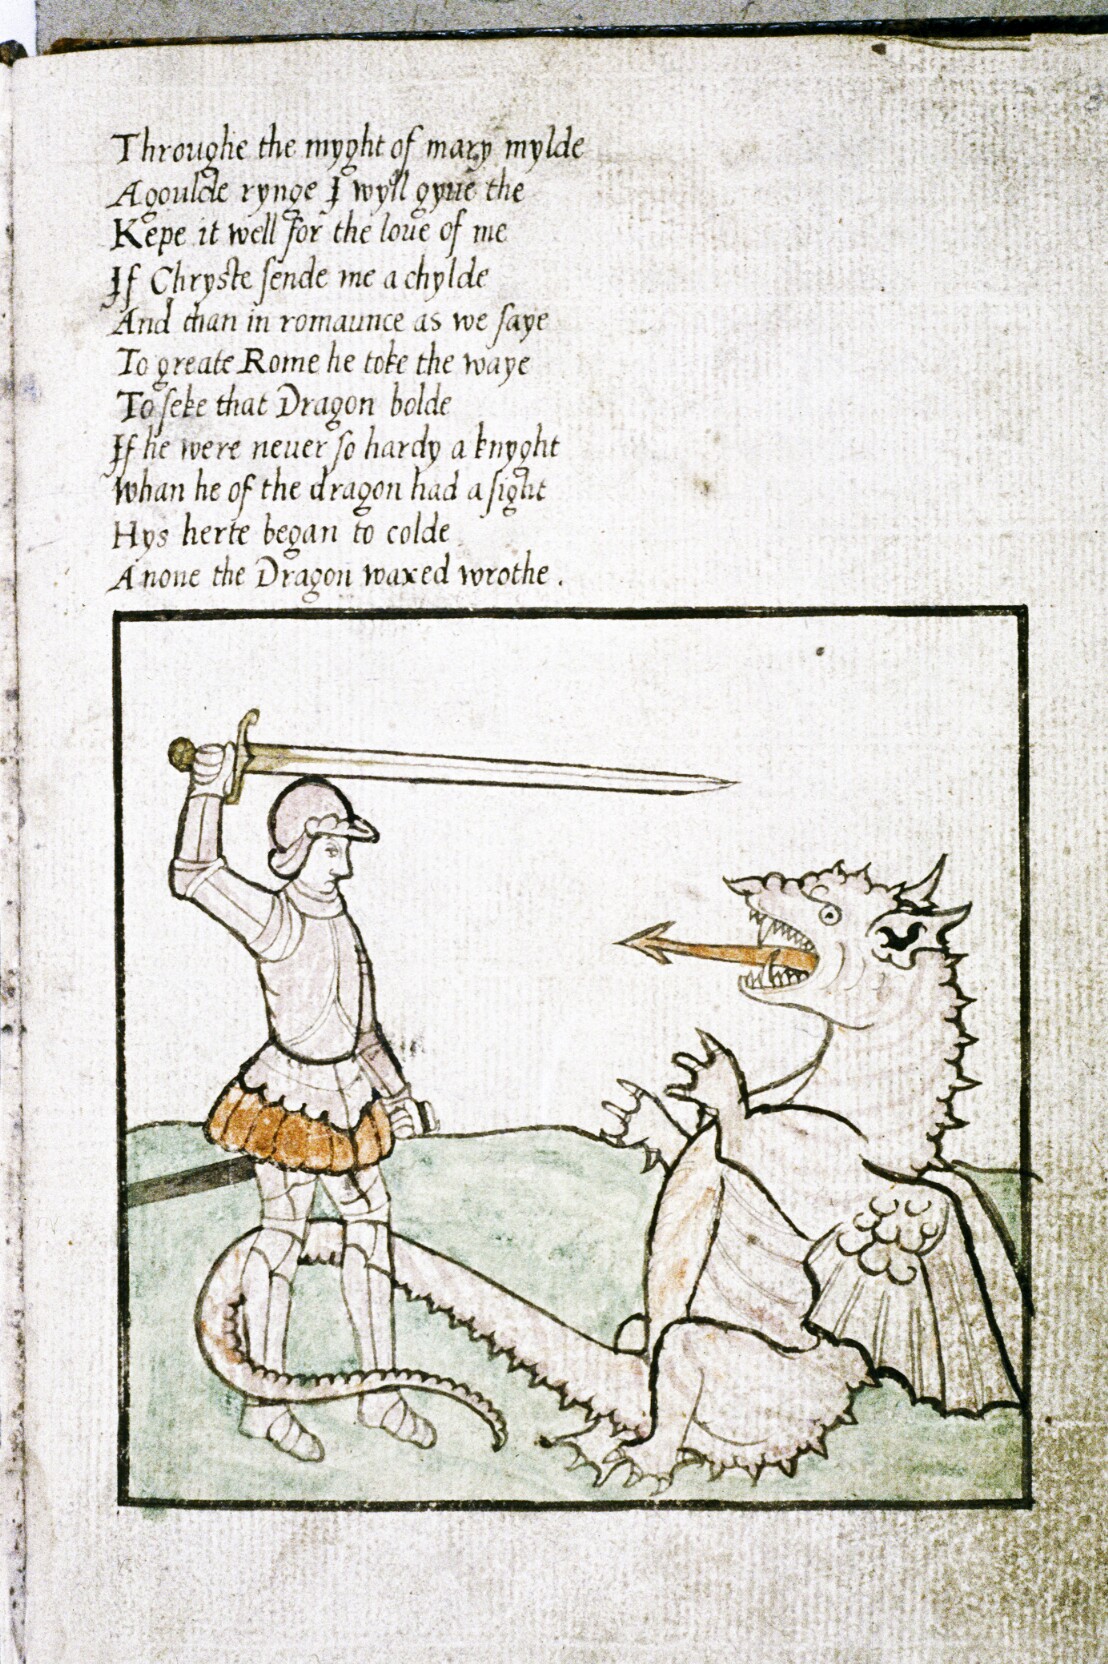 Throughe the myght of mary mylde
A goulde rynge I wyll gyue the
Kepe it well for the loue of me
If Chryste sende me a chylde
And than in romaunce as we saye
To greate Rome he toke the waye
To seke that Dragon bolde
If he were neuer so hardy a knyght
Whan he of the dragon had a sight
Hys herte began to colde
Anone the Dragon waxed wrothe.